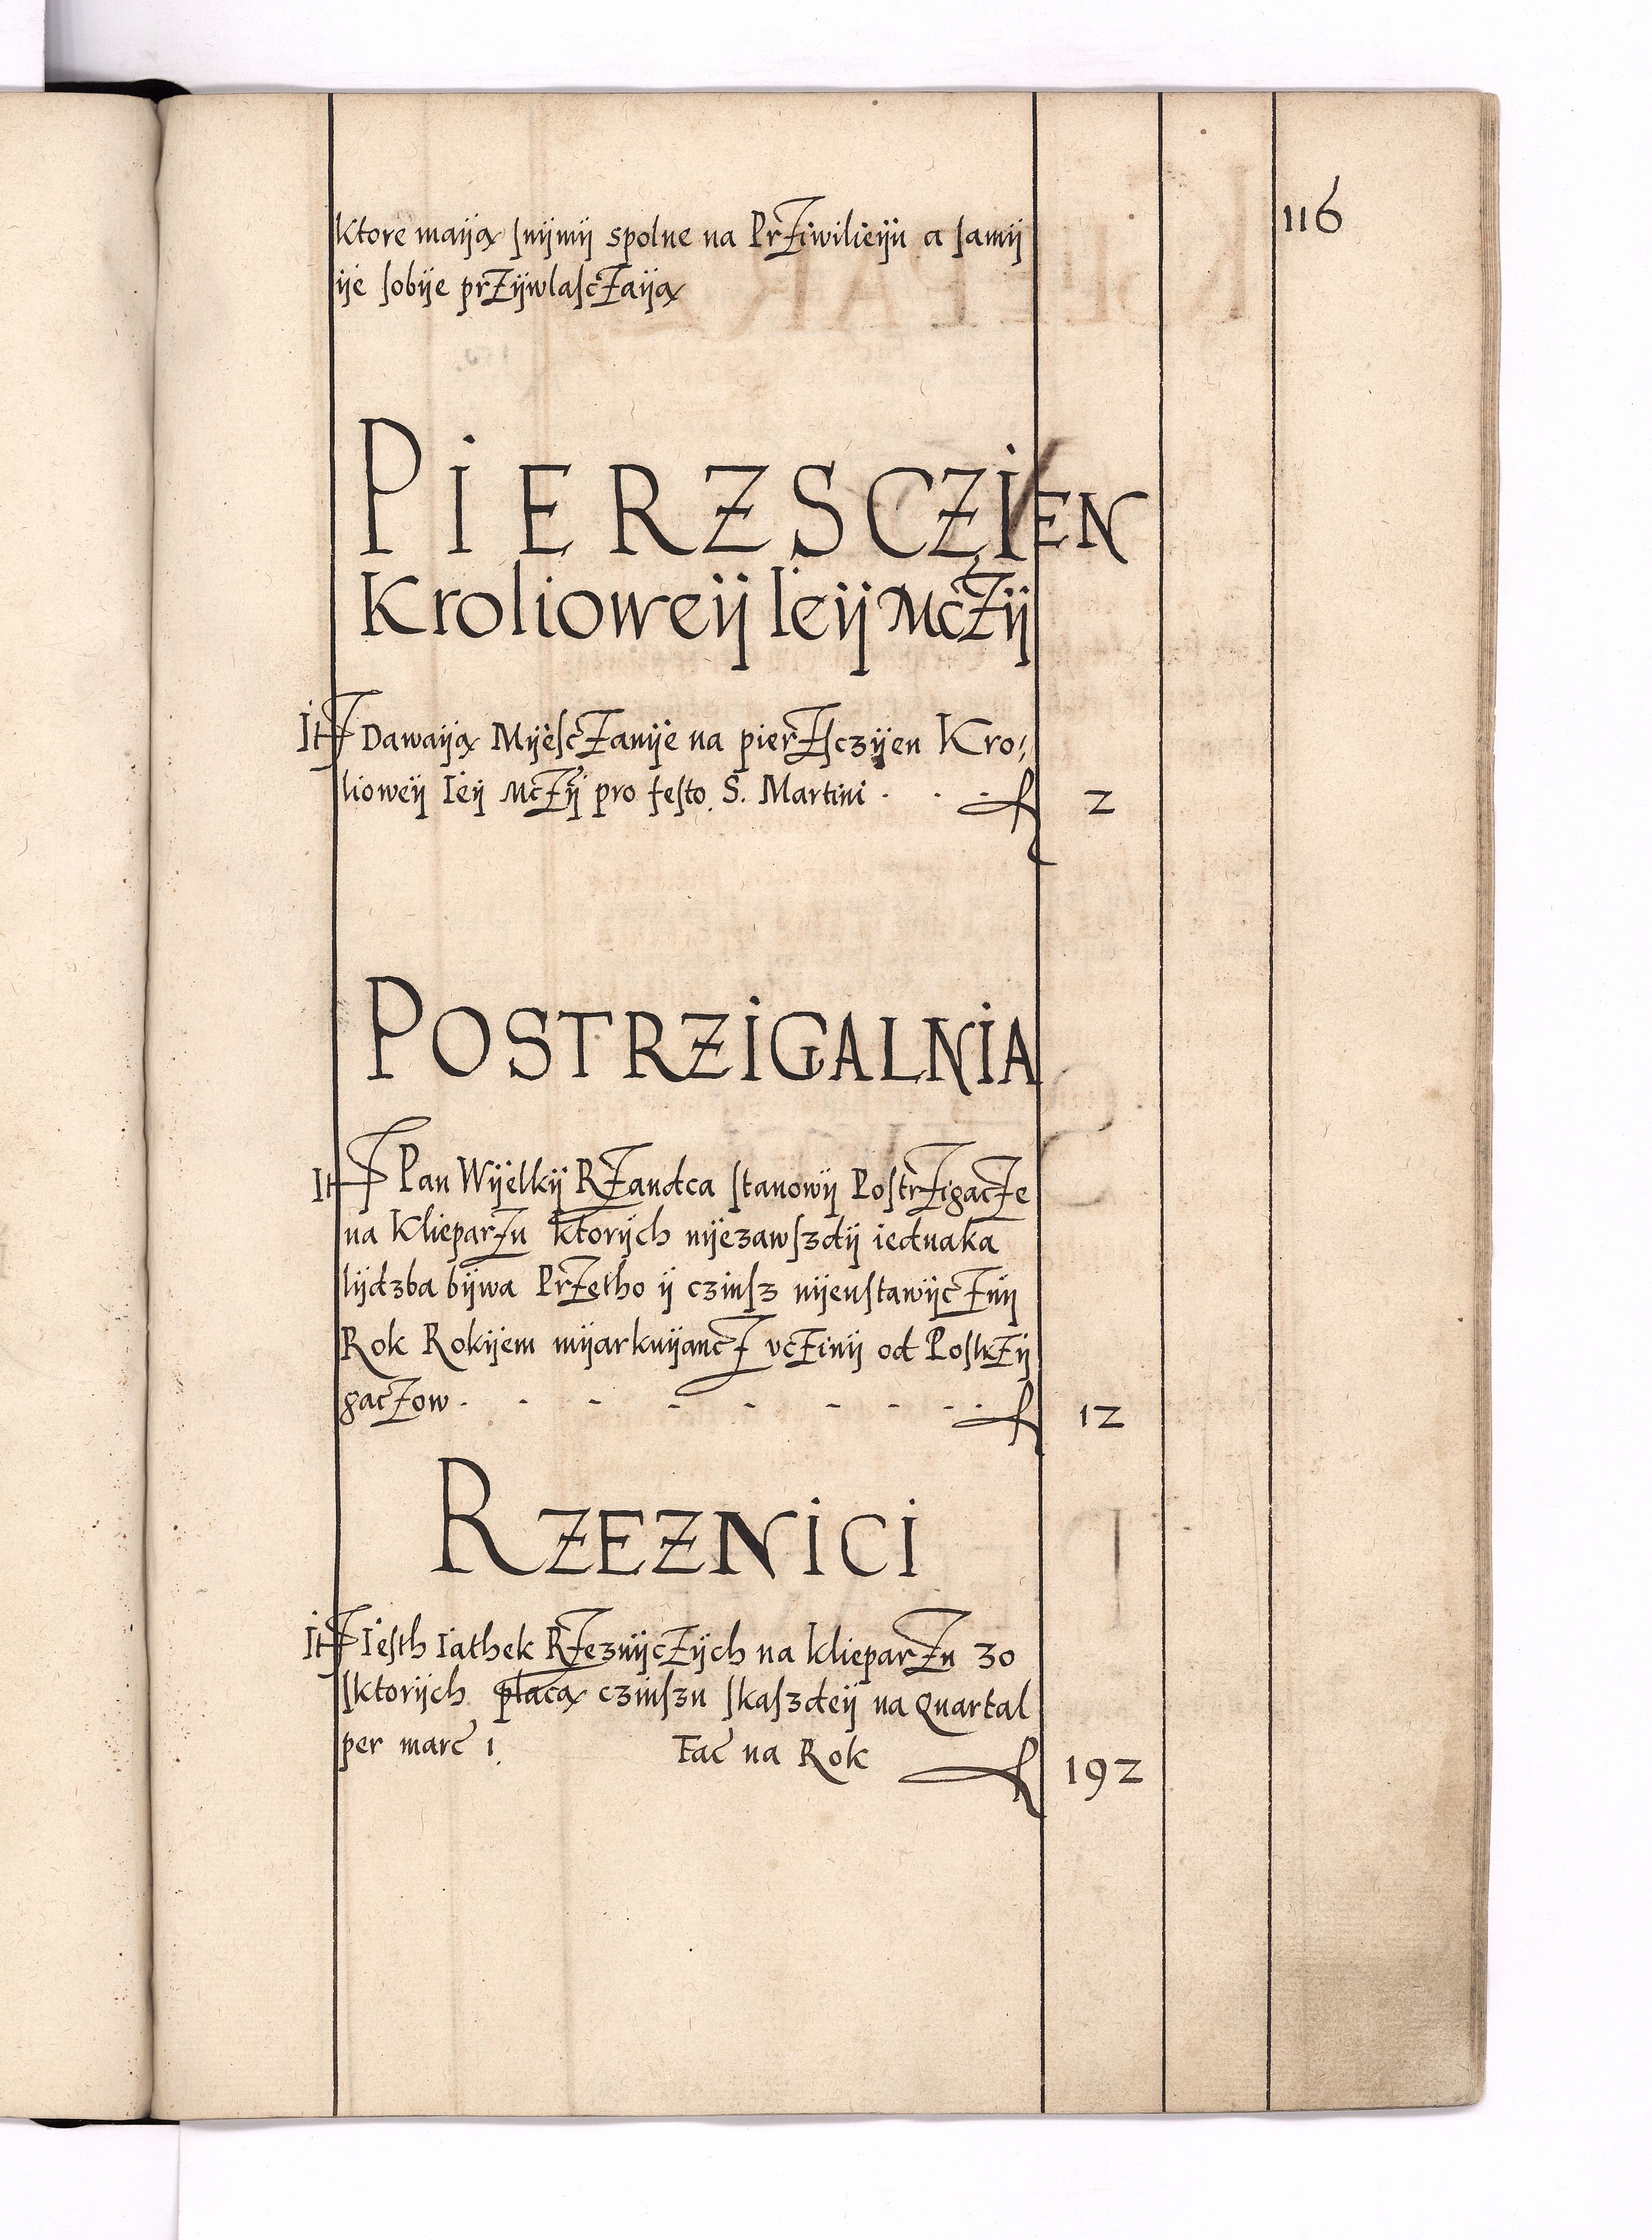 116
Ktore maiją snijmij spolne na Prziwilieiju a samij
ije sobije przijwlasczaiją
PIERZSCZIEN
Krolioweij Ieij Mczij
It Dawaiją Mijesczanije na pierzsczijen Kro:
lioweij Ieij Mczij pro festo S. Martini . . . f 2
POSTRZIGALNIA
It Pan Wijelkij Rzandca stanowij Postrzigacze
na Klieparzu ktorijch nijezawszdij iednaka
lijdzba bijwa Przetho ij czinsz nijeustawijcznij
Rok Rokijem mijarkuijancz vczinij od Postrzij
gaczow . - - - - - - - . f 12
RZEZNICI
It Iesth Iathek Rzeznijczijch na Klieparzu 30
sktorijch płaczą czinszu skaszdeij na Quartal
per marc 1. Fac na Rok f 192